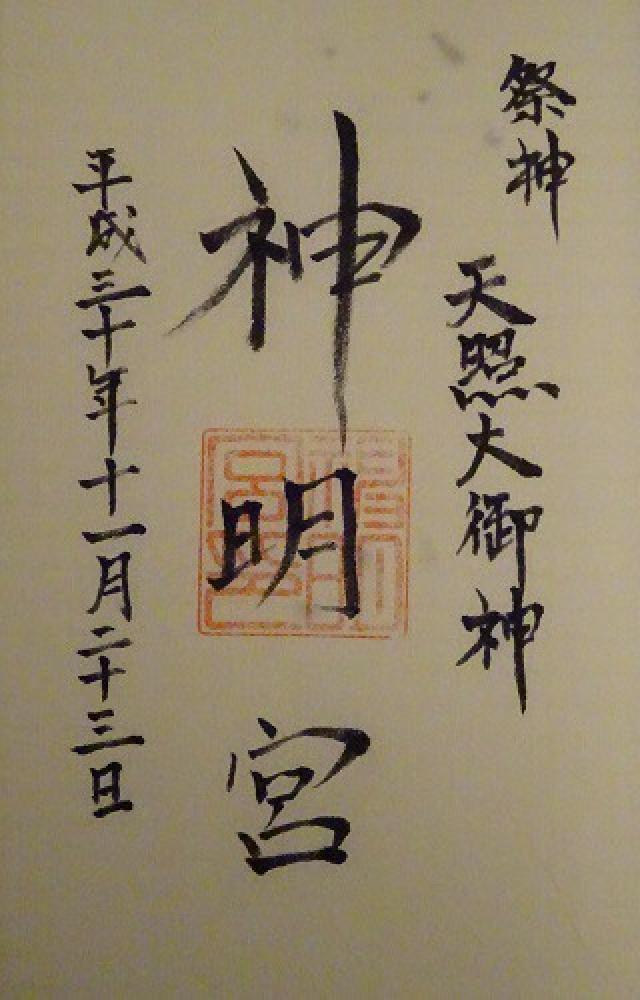 祭神
天照大御神
神明宮
平成三十年十一月二十三日